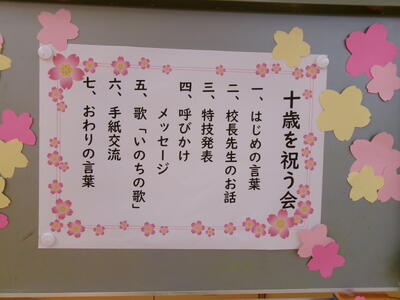 十歳を祝う会
一、はじめの言葉
二、校長先生のお話
三、特技発表
四、呼びかけ
メッセージ
五、歌「いのちの歌」
六、手紙交流
七、おわりの言葉